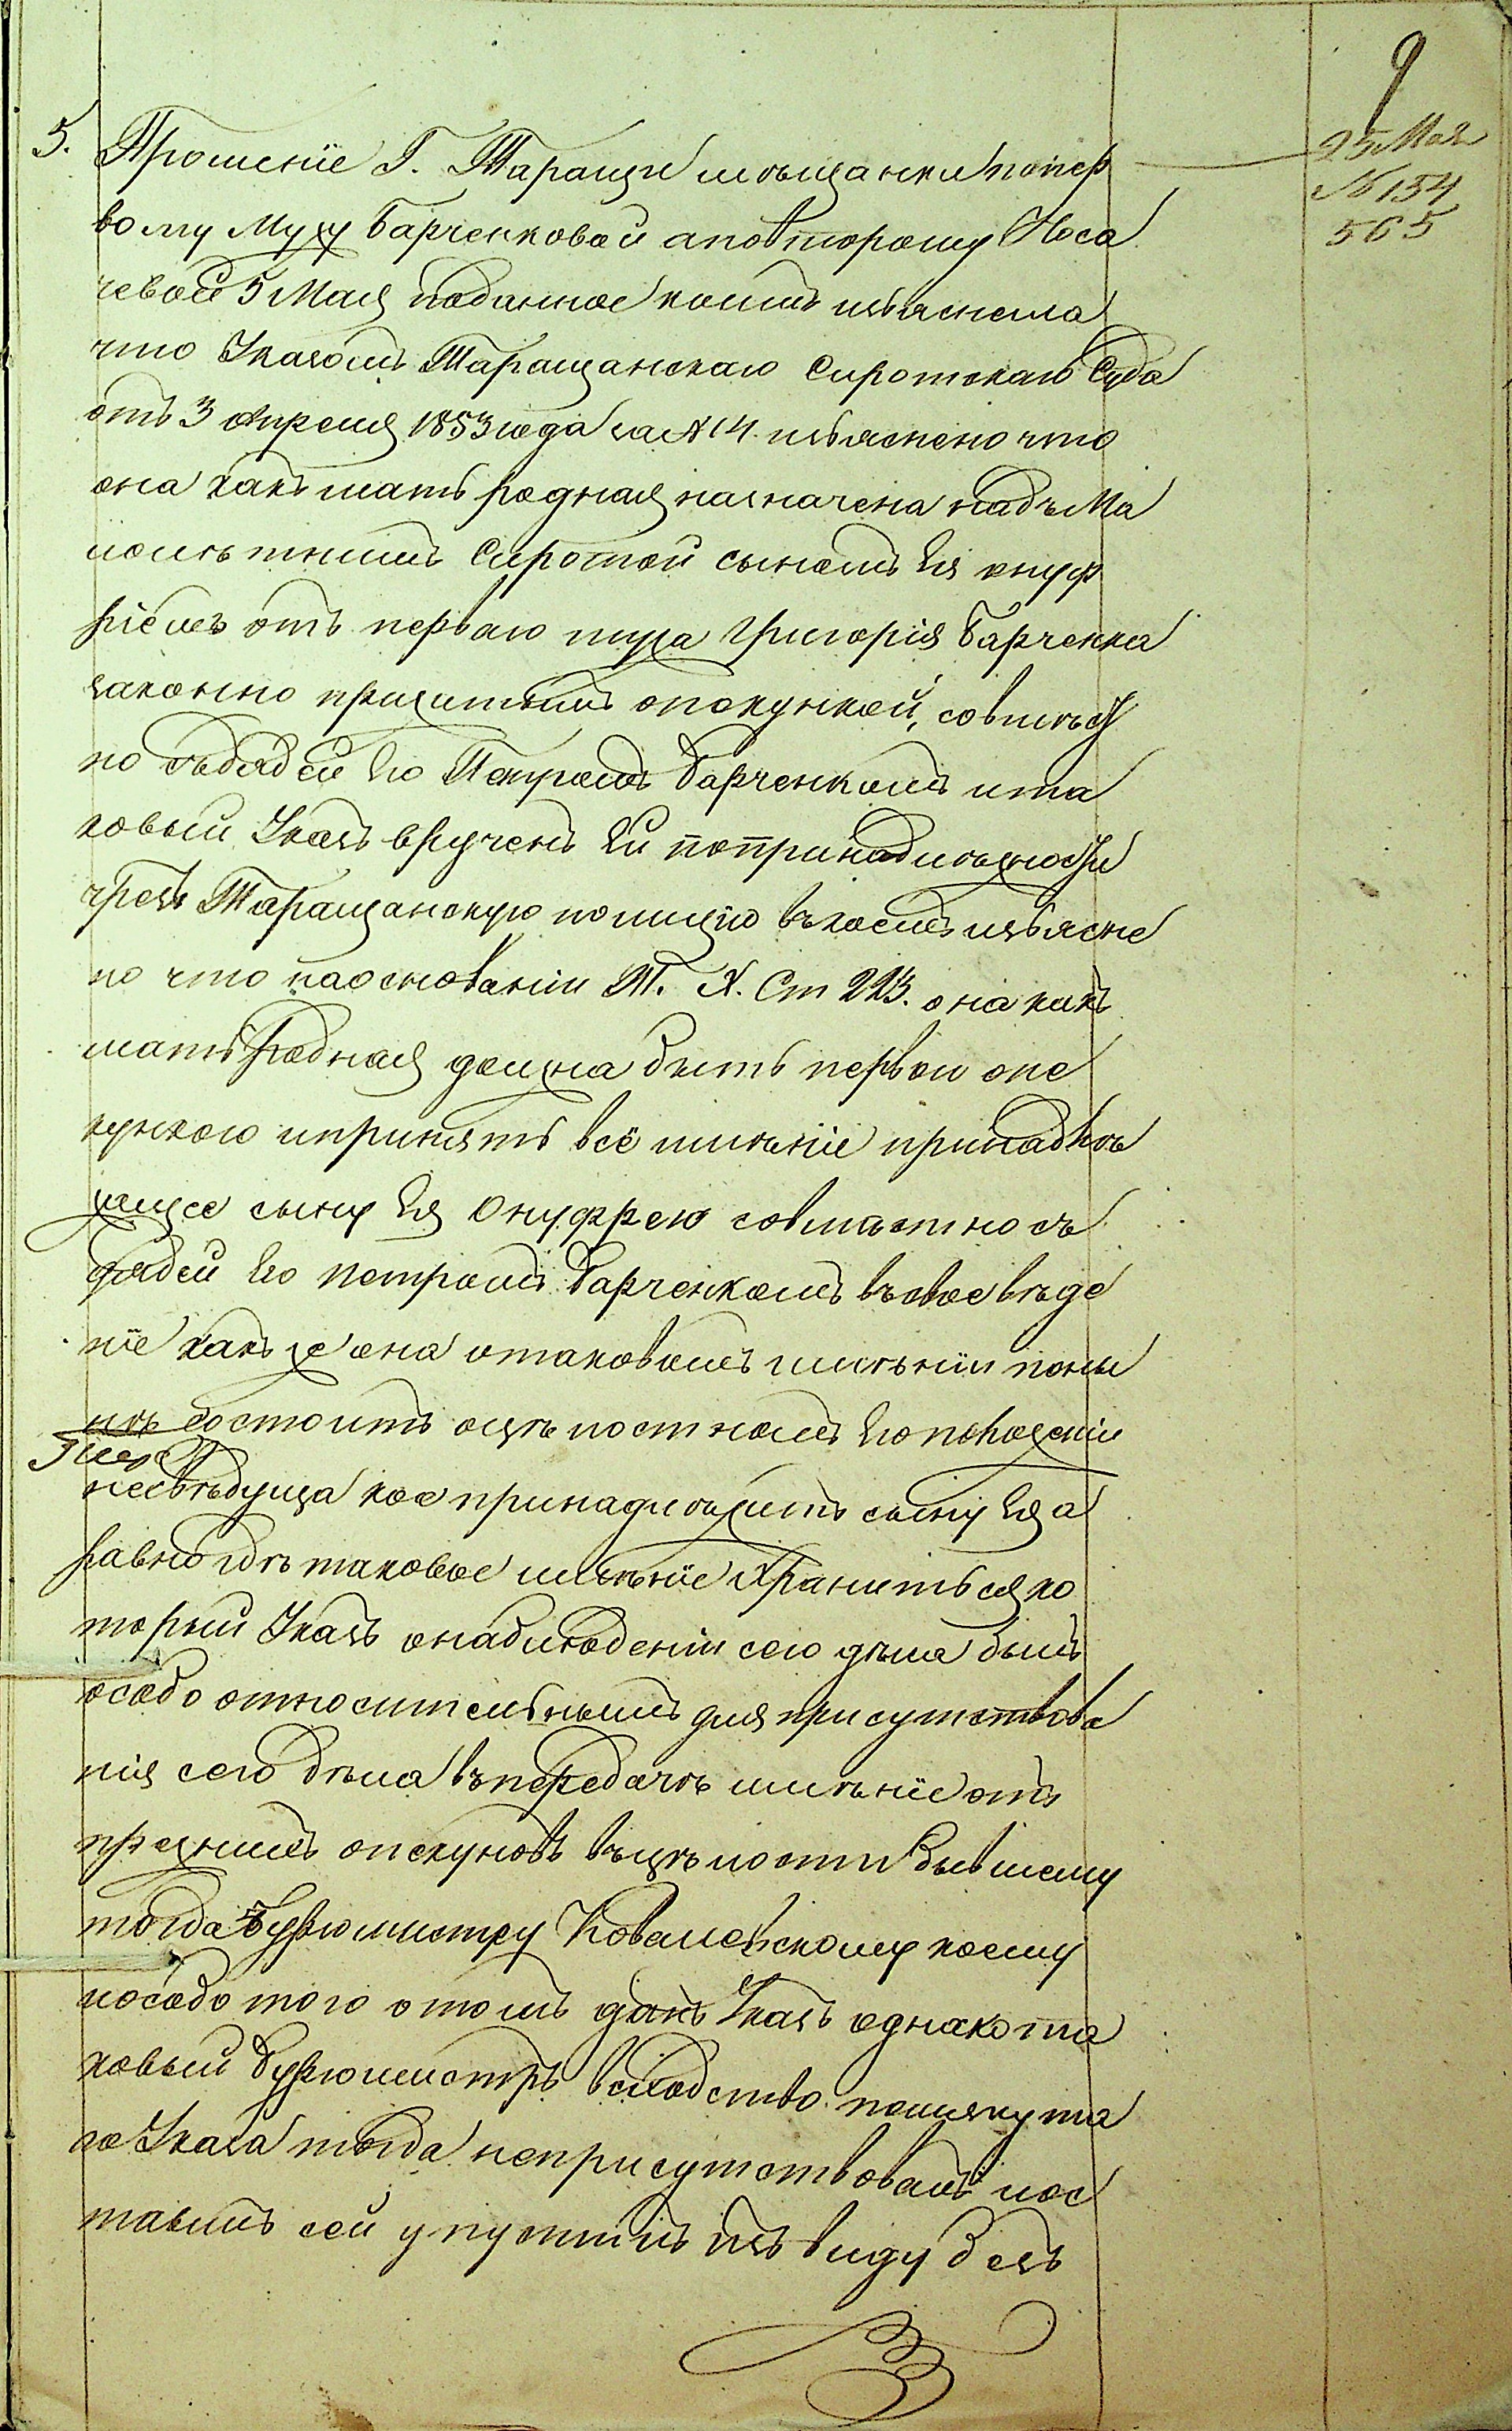 9
25 Мая
№ 154
565
5. Прошеніе Г. Таращи мѣщанки попер
вому мужу Барченковой аповторому Носа
чевой 5 Мая поданное коимъ изъяснела
что Указомъ Таращанскаго Сиротскаго Суда
отъ 3 Апреля 1853 года за № 14 изъяснено что
она какъ мать родная назначена надъ Ма
лолѣтнимъ Сиротой сыномъ Ея онуф
ріемъ отъ перваго мужа Григорія Барченка
законно прижитымъ опокункой, совмѣст
но съ дядей Его Петромъ Барченкомъ ита
ковый Указъ врученъ Ей попринадлѣжности
чрезъ Таращанскую полицію въ коемъ изъясне
но что наосновании Т. X. Ст 223. она какъ
мать родная должна быть первой опе
кункою ипринять всё имѣніе принадлѣ
жащее сыну Ея Онуфрею совмѣстно съ
дядей Его Петромъ Барченкомъ въ свое вѣде
ніе какъ же она отаковомъ имѣніи поны
нѣ состоитъ оцѣлостномъ Его положеніи
несвѣдуща кое принадлѣжитъ сыну Ея а
равно гдѣ таковое имѣніе хранится ко
торый Указъ онаблюденіи сего дѣла былъ
особо относительнымъ для присутствова
нія сего дѣла въ передачѣ имѣніе отъ
прежнихъ опекуновъ въ цѣлости Бывшему
тогда Бургомистру Ковалевскому коему
иособо того отомъ данъ Указъ однако та
ковый Бургомистръ всходство помянута
го Указа тогда неприсутствовалъ иос
тавилъ сей упустилъ изъ виду безъ